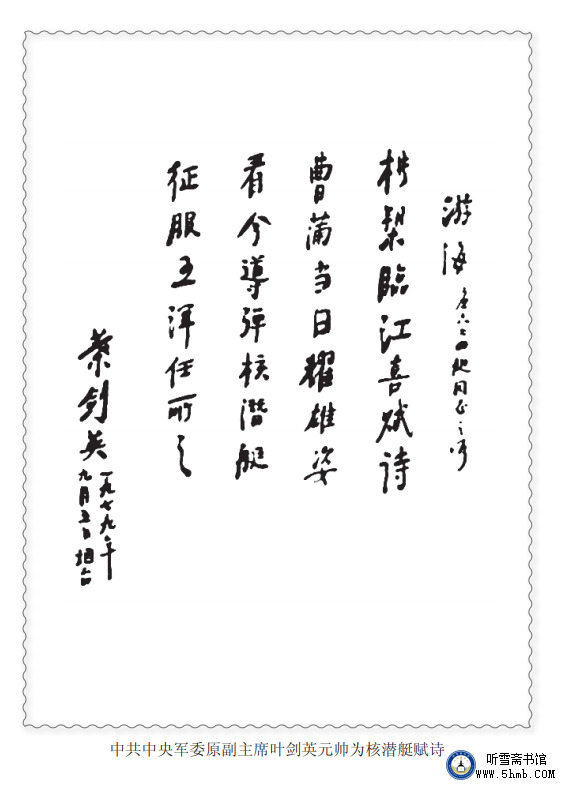 游海
同志之
横槊臨江喜赋诗
曹当日耀雄姿
看今導弹核潜艇
征服五洋任所之
葉剑英
一九七九年
九月五日烟台
中共中央军委原副主席叶剑英元帅为核潜艇赋诗
听雪斋书馆
www.5hmb.com